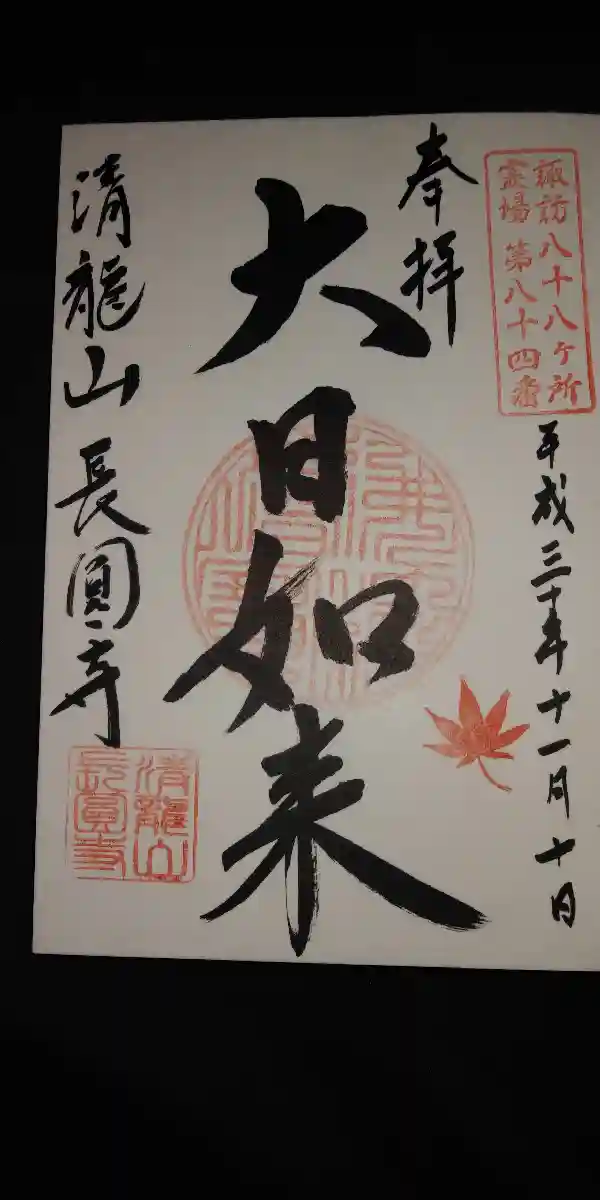 諏訪八十八ヶ所
霊場 第八十四番
奉拝
平成三十年十一月十日
大日如来
清龍山 長圓寺
清龍山
長圓寺